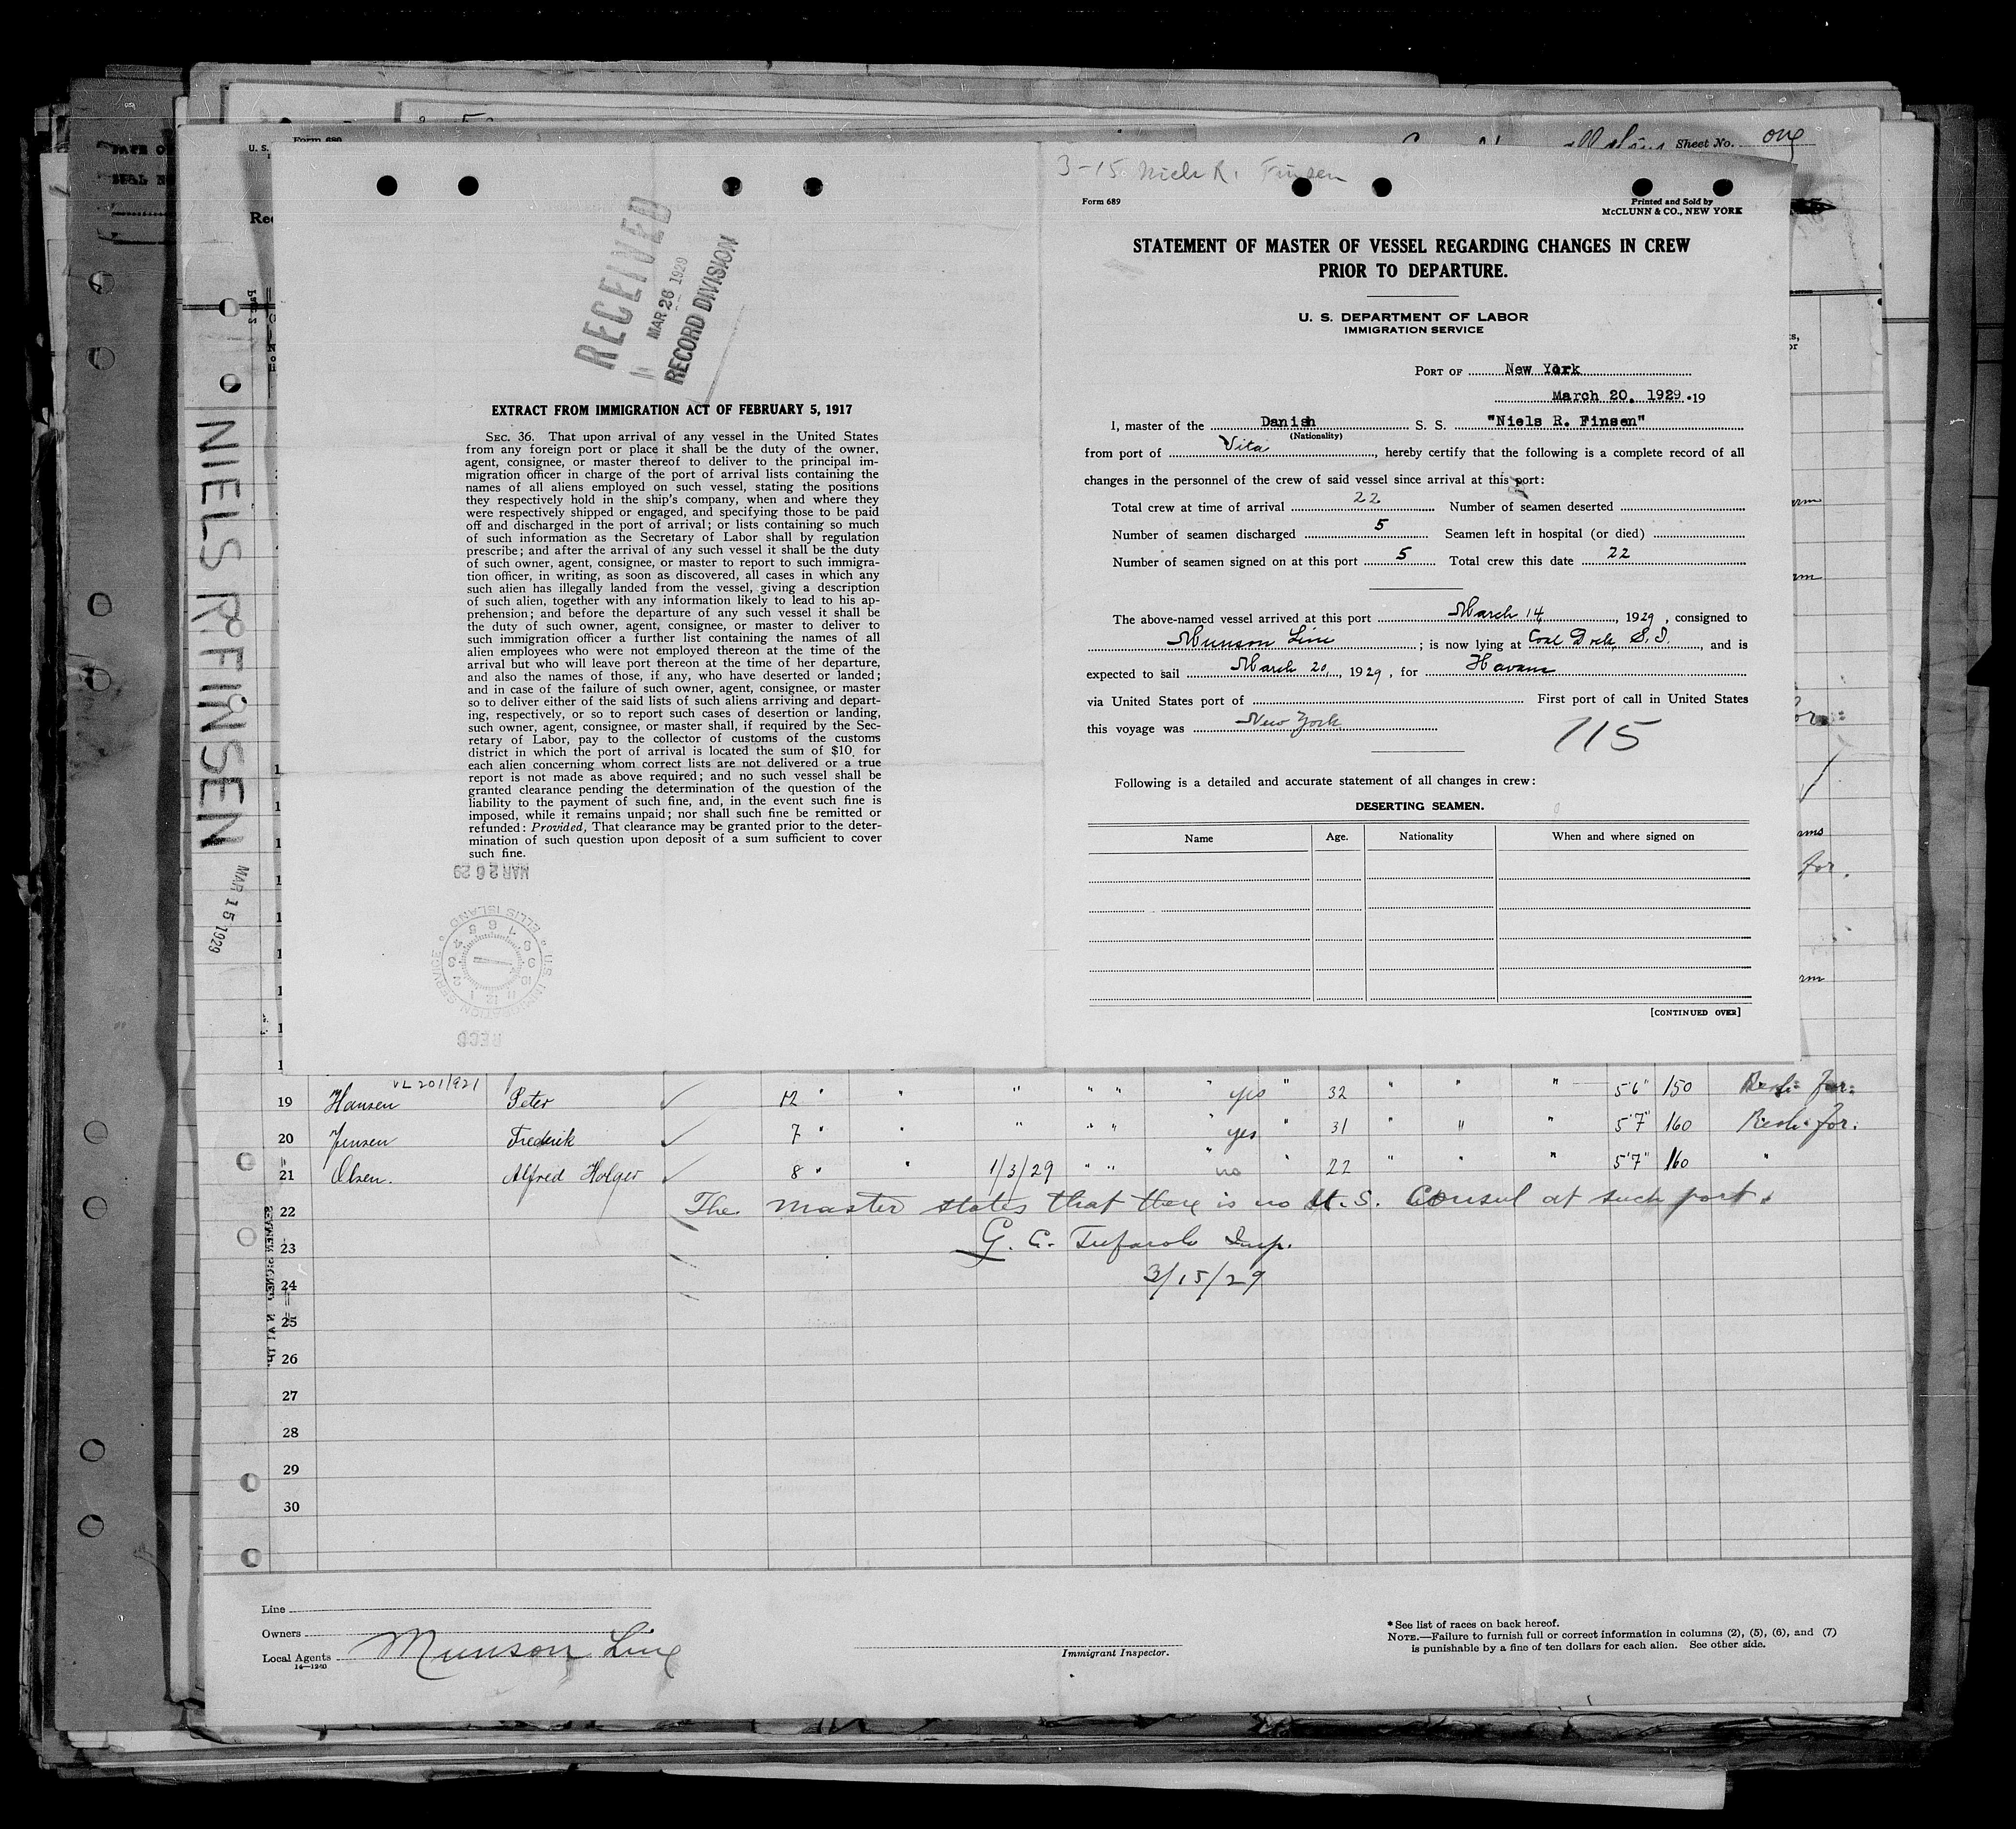 Form 689
U. S.
Sheet No. one
NIELS R. FINSEN
MAR 15 1929
RECEIVED
MAR 26 1929
RECORD DIVISION
EXTRACT FROM IMMIGRATION ACT OF FEBRUARY 5, 1917
SEC. 36. That upon arrival of any vessel in the United States
from any foreign port or place it shall be the duty of the owner,
agent, consignee, or master thereof to deliver to the principal im-
migration officer in charge of the port of arrival lists containing the
names of all aliens employed on such vessel, stating the positions
they respectively hold in the ship's company, when and where they
were respectively shipped or engaged, and specifying those to be paid
off and discharged in the port of arrival; or lists containing so much
of such information as the Secretary of Labor shall by regulation
prescribe; and after the arrival of any such vessel it shall be the duty
of such owner, agent, consignee, or master to report to such immigra-
tion officer, in writing, as soon as discovered, all cases in which any
such alien has illegally landed from the vessel, giving a description
of such alien, together with any information likely to lead to his ap-
prehension; and before the departure of any such vessel it shall be
the duty of such owner, agent, consignee, or master to deliver to
such immigration officer a further list containing the names of all
alien employees who were not employed thereon at the time of the
arrival but who will leave port thereon at the time of her departure,
and also the names of those, if any, who have deserted or landed;
and in case of the failure of such owner, agent, consignee, or master
so to deliver either of the said lists of such aliens arriving and depart-
ing, respectively, or so to report such cases of desertion or landing,
such owner, agent, consignee, or master shall, if required by the Sec-
retary of Labor, pay to the collector of customs of the customs
district in which the port of arrival is located the sum of $10 for
each alien concerning whom correct lists are not delivered or a true
report is not made as above required; and no such vessel shall be
granted clearance pending the determination of the question of the
liability to the payment of such fine, and, in the event such fine is
imposed, while it remains unpaid; nor shall such fine be remitted or
refunded: Provided, That clearance may be granted prior to the deter-
mination of such question upon deposit of a sum sufficient to cover
such fine.
MAR 26 29
U.S. IMMIGRATION SERVICE
ELLIS ISLAND
RECD
3-15 Niels R. Finsen
Form 689
Printed and Sold by
McCLUNN & CO., NEW YORK
STATEMENT OF MASTER OF VESSEL REGARDING CHANGES IN CREW
PRIOR TO DEPARTURE.
U. S. DEPARTMENT OF LABOR
IMMIGRATION SERVICE
PORT OF New York
March 20, 1929.19
I, master of the Danish S. S. "Niels R. Finsen"
(Nationality)
from port of Vita, hereby certify that the following is a complete record of all
changes in the personnel of the crew of said vessel since arrival at this port:
Total crew at time of arrival 22 Number of seamen deserted
Number of seamen discharged 5 Seamen left in hospital (or died)
Number of seamen signed on at this port 5 Total crew this date 22
The above-named vessel arrived at this port March 14, 1929, consigned to
Munson Line; is now lying at Coal Dock, S. I., and is
expected to sail March 20, 1929, for Havana
via United States port of First port of call in United States
this voyage was New York
115
Following is a detailed and accurate statement of all changes in crew:
DESERTING SEAMEN.
Name Age. Nationality When and where signed on
[CONTINUED OVER]
VL 201/921
19 Hansen Peter ✓ 12 " " " " " " yes " 32 " " " 5'6" 150
20 Jensen Frederik ✓ 7 " " " " " yes " 31 " " " 5'7" 160
21 Olsen. Alfred Holger ✓ 8 " " 1/3/29 " " " no " 22 " " " 5'7" 160 "
22 The master states that there is no U.S. Consul at such port.
23 G. C. Insp.
24 3/15/29
25
26
27
28
29
30
Line
Owners
Local Agents Munson Line
14—1240
Immigrant Inspector.
*See list of races on back hereof.
NOTE.—Failure to furnish full or correct information in columns (2), (5), (6), and (7)
is punishable by a fine of ten dollars for each alien. See other side.